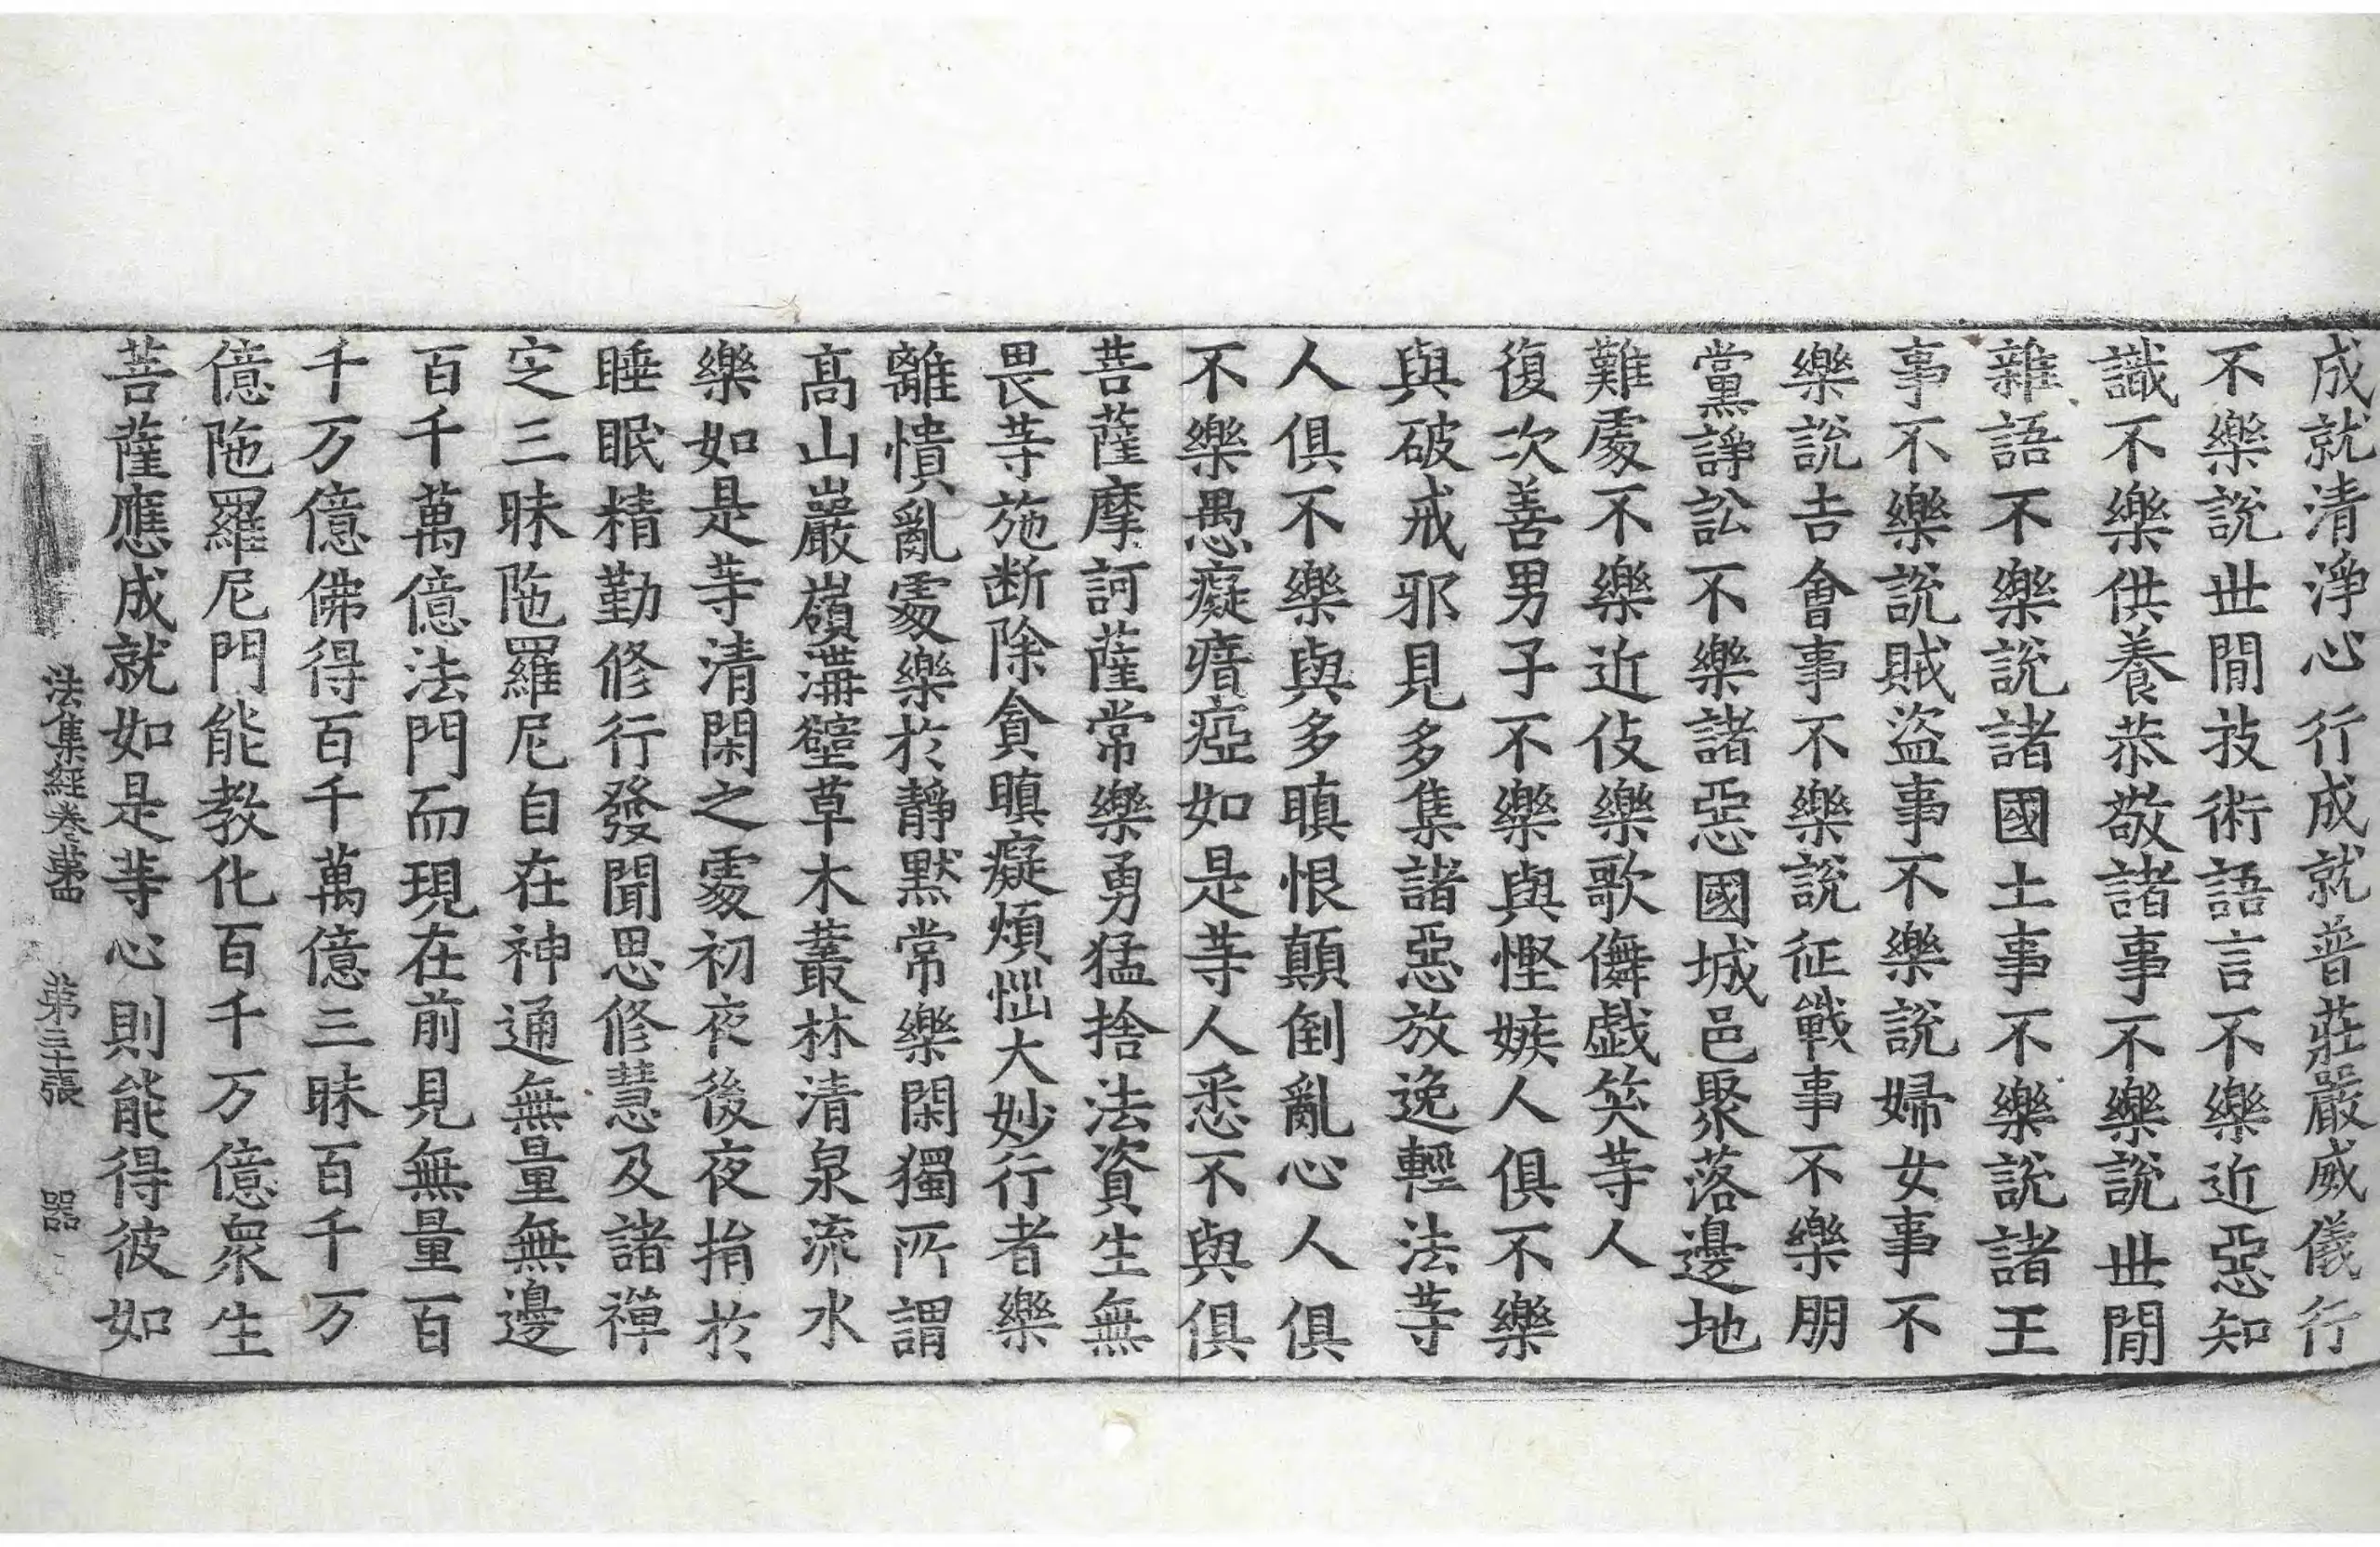 成就清淨心行成就普莊嚴威儀行
不樂說世閒技術語言不樂近惡知
識不樂供養恭敬諸事不樂說世閒
雜語不樂說諸國土事不樂說諸王
事不樂說賊盜事不樂說婦女事不
樂說吉會事不樂說征戰事不樂朋
黨諍訟不樂諸惡國城邑聚落邊地
難處不樂近伎樂歌儛戱笑等人
復次善男子不樂與慳嫉人俱不樂
與破戒邪見多集諸惡放逸輕法等
人俱不樂與多瞋恨顛倒亂心人俱
不樂愚癡瘖瘂如是等人悉不與俱
菩薩摩訶薩常樂勇猛捨法資生無
畏等施断除貪瞋癡煩惱大妙行者樂
離憒亂處樂於靜默常樂閑獨所謂
高山巖嶺溝壑草木叢林清泉流水
樂如是等清閑之處初夜後夜捐於
睡眠精勤修行發聞思修慧及諸禪
定三昧陁羅尼自在神通無量無邊
百千萬億法門而現在前見無量百
千万億佛得百千萬億三昧百千万
億陁羅尼門能教化百千万億衆生
菩薩應成就如是等心則能得彼如
法集經卷苐四 苐三十張 器